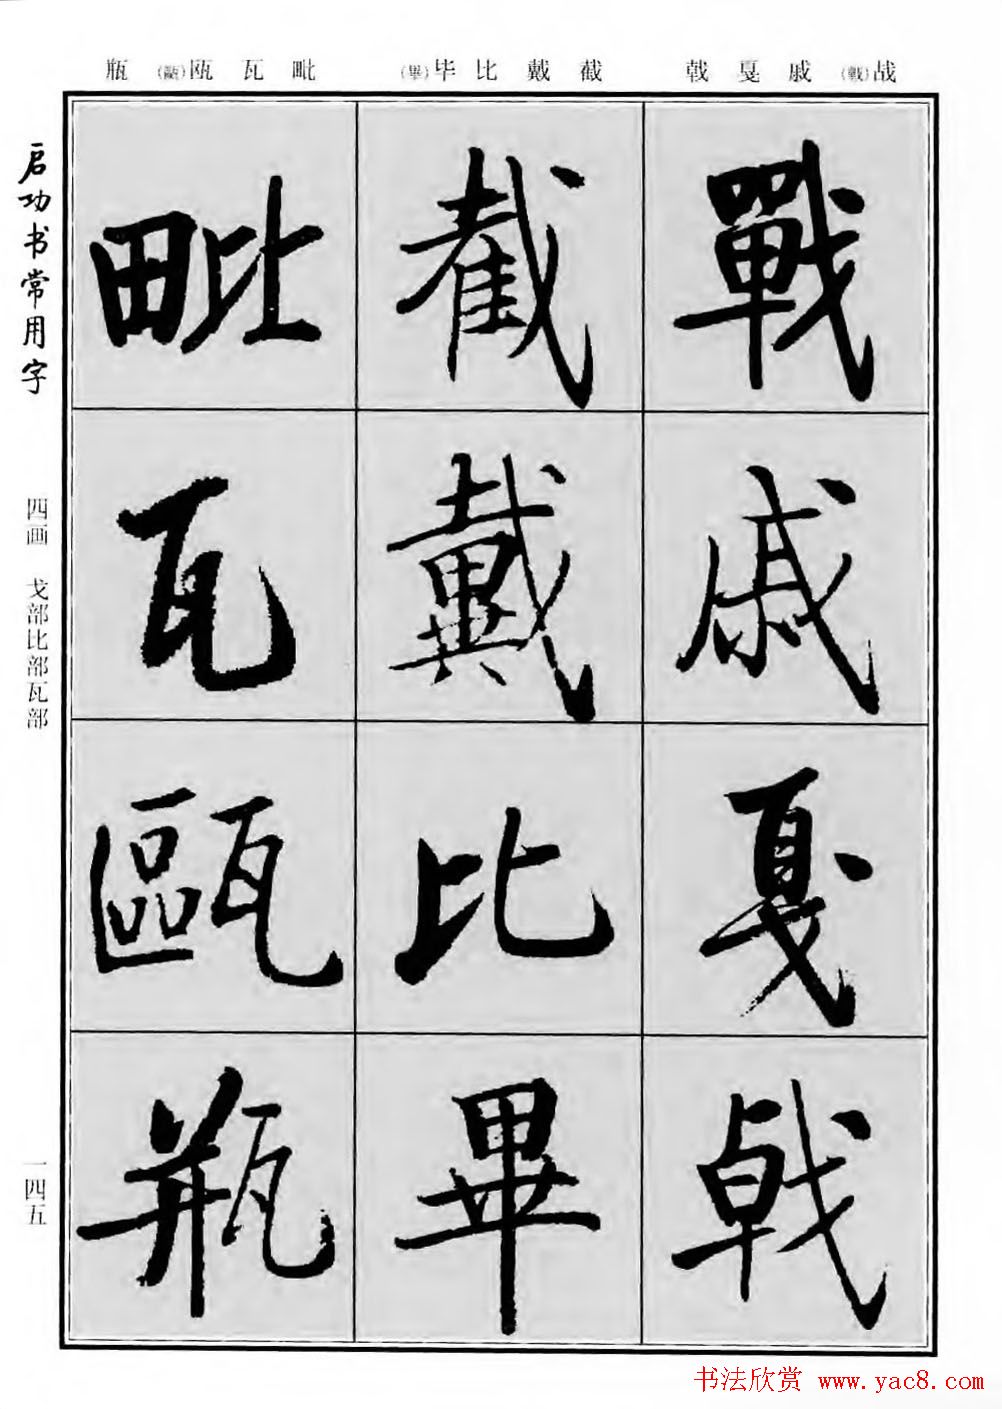 战(戰) 戚 戛 戟 截 戴 比 毕(畢) 毗 瓦 瓯(甌) 瓶
戰戚戛戟
截戴比畢
毗瓦甌瓶
启功书常用字
四画 戈部比部瓦部
一四五
书法欣赏 www.yac8.com